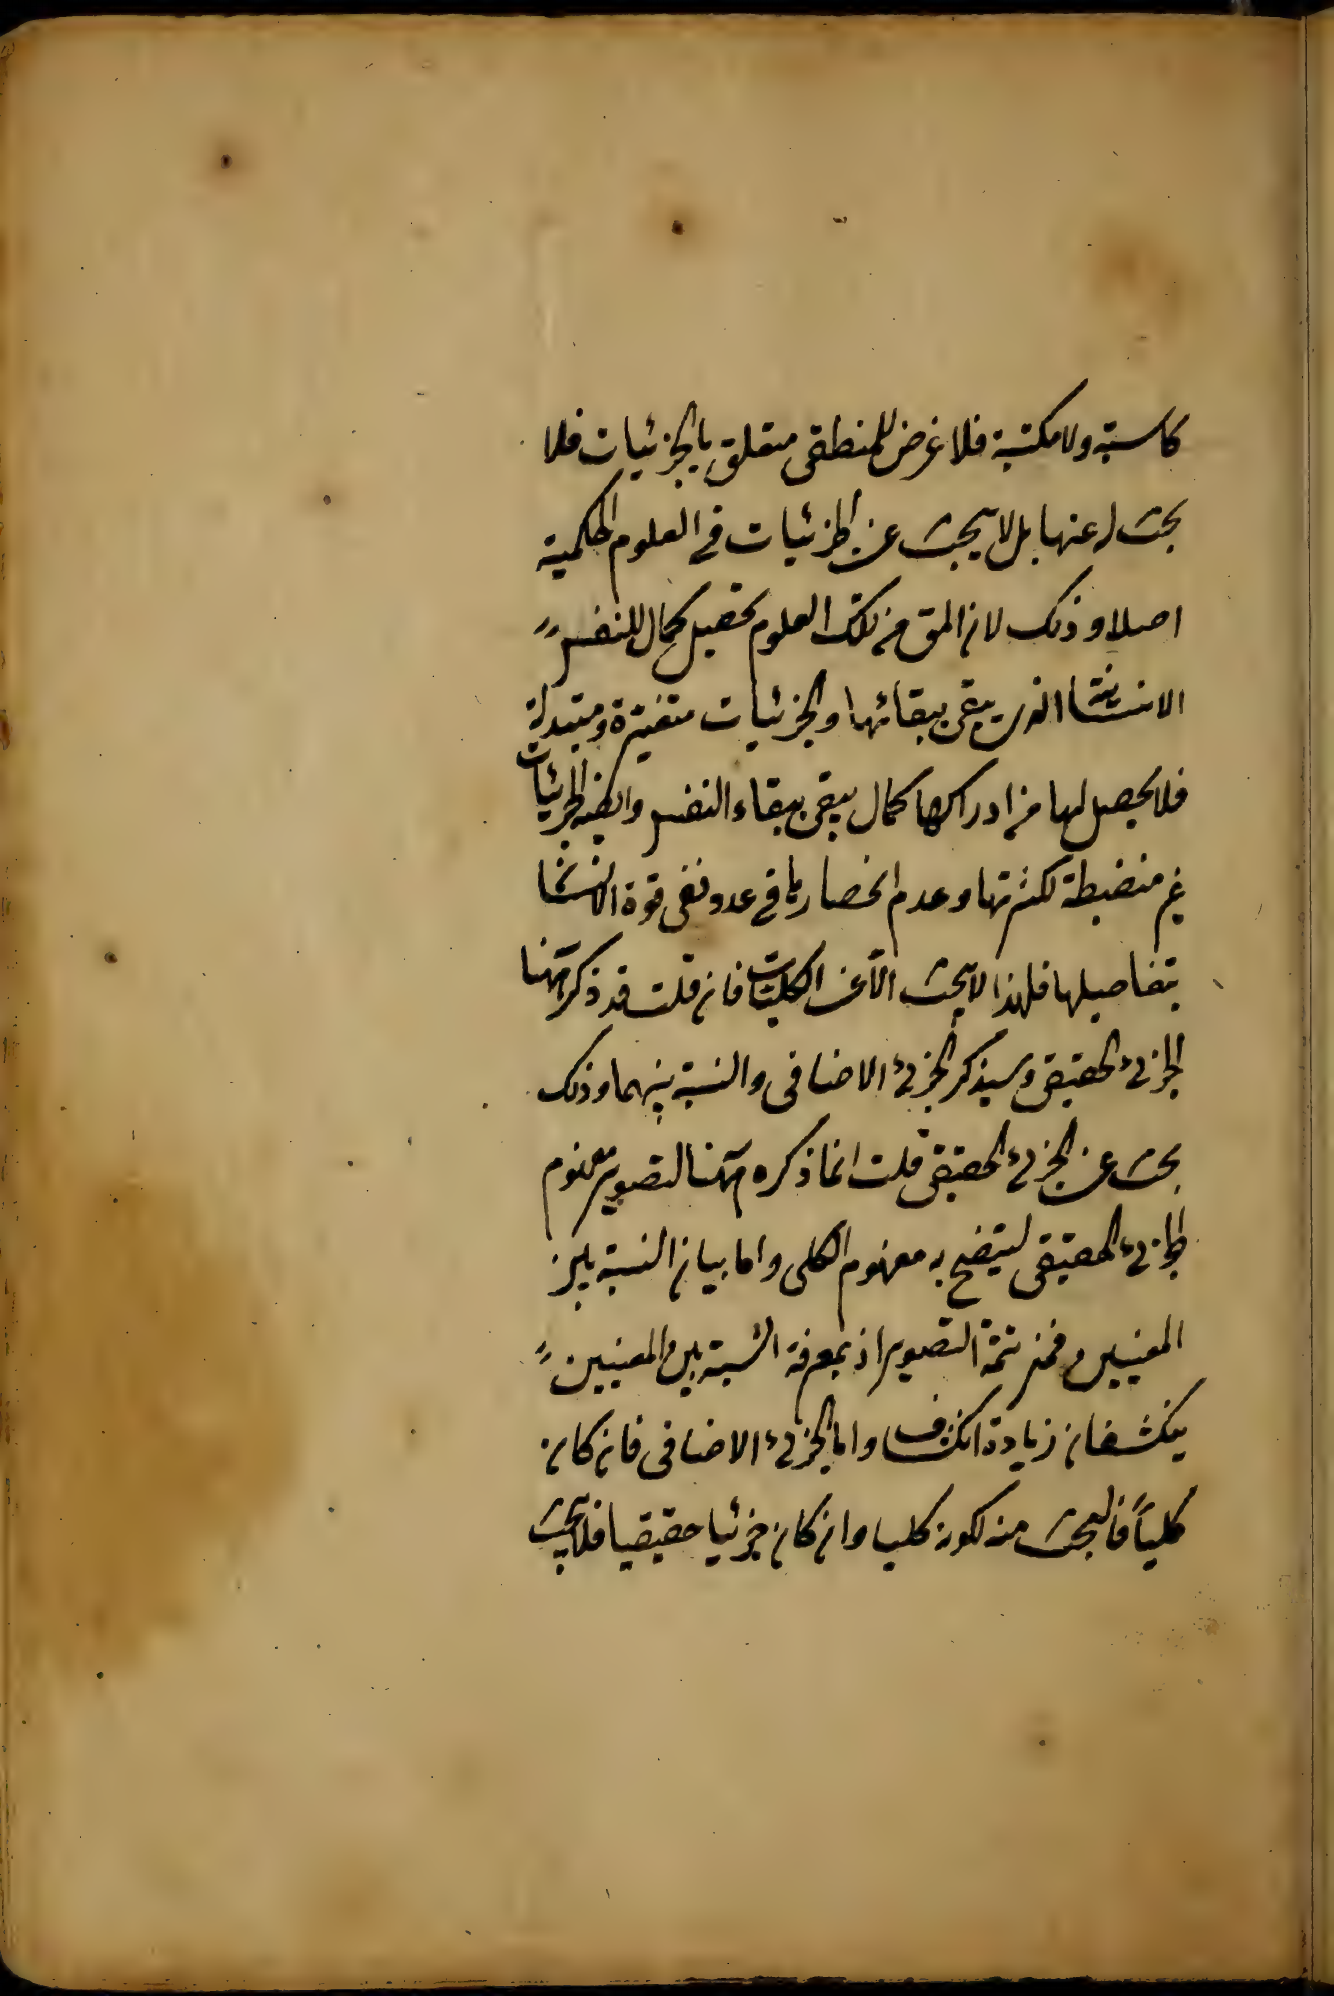 كاسبة ولا مكتسبة فلا غرض للمنطقى متعلق بالجزئيات فلا
بحث له عنها بل لا يبحث عن الجزئيات فى العلوم الحكمية
اصلا وذلك لان المق من تلك العلوم تحصيل كمال للنفس
الانسانية الذى يبقى ببقائها والجزئيات متغيرة ومتبدلة
فلا يحصل لها من ادراكها كمال يبقى ببقاء النفس وايضا الجزئيات
غير منضبطة لكثرتها وعدم انحصارها فى عدد تفى قوة الانسان
بتفاصيلها فلهذا لا يبحث الا عن الكليات فان قلت قد ذكر ههنا
الجزئى الحقيقى وسيذكر الجزئى الاضافى والنسبة بينهما وذلك
بحث عن الجزئى الحقيقى قلت انما ذكره ههنا لتصوير مفهوم
الجزئى الحقيقى ليتضح به مفهوم الكلى واما بيان النسبة بين
المعنيين فمن تتمة التصوير اذ بمعرفة النسبة بين المعنيين
ينكشفان زيادة انكشاف واما الجزئى الاضافى فان كان
كلياً فالبحث منه لكونه كليا وان كان جزئيا حقيقيا فلا يبحث